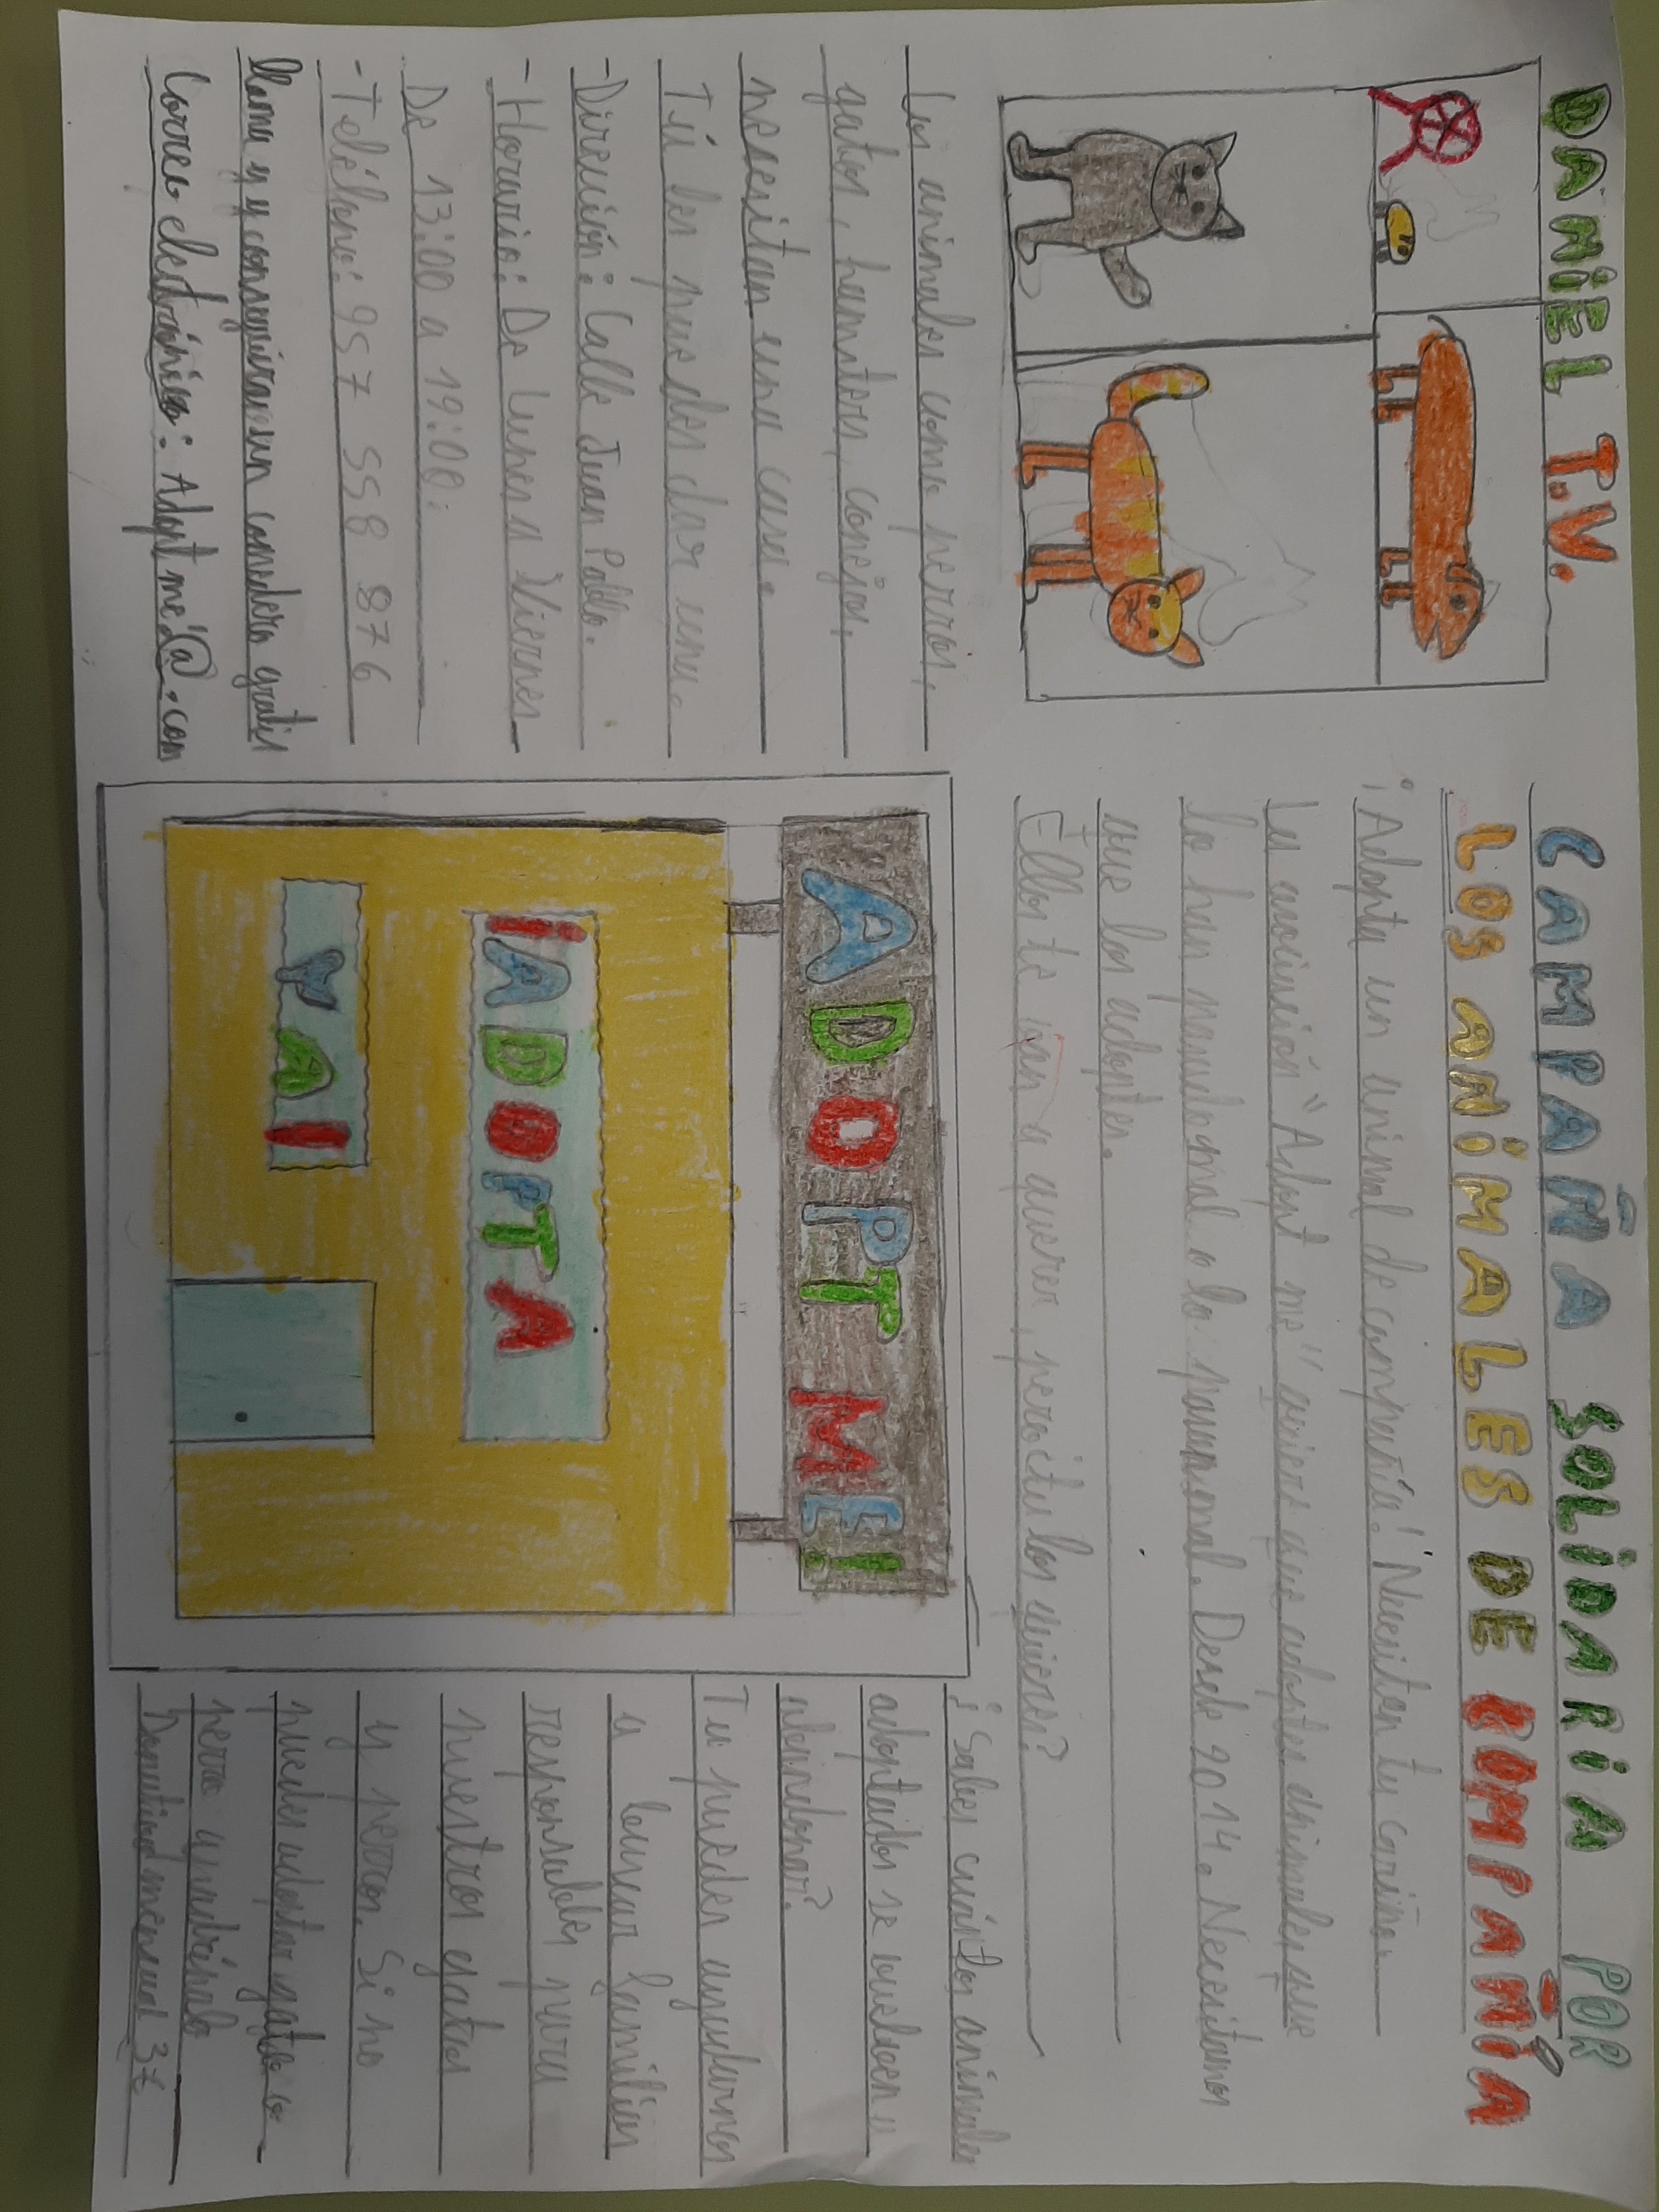 DANIEL T.V.
CAMPAÑA SOLIDARIA POR
LOS ANIMALES DE COMPAÑÍA
¡Adopta un animal de compañía! Necesitan tu cariño.
La asociación "Adopt me" quiere que adoptes animales que
lo han pasado mal o lo pasan mal. Desde 2014. Necesitamos
que los adoptes.
Ellos te van a querer, pero ¿tu los quieres?
Los animales como perros,
gatos, hamsters, conejos,
necesitan una casa.
Tú les puedes dar una.
-Dirección: Calle Juan Pablo.
-Horario: De Lunes a Viernes
De 13:00 a 19:00.
-Teléfono: 957 558 876
llama y y conseguiras un comedero gratis
Correo electrónico: Adopt me@.com
ADOPT ME!
¡ADOPTA
YA!
¿Sabes cuántos animales
adoptados se vuelven a
abandonar?
Tu puedes ayudarnos
a buscar familias
responsables para
nuestros gatos
y perros. Si no
puedes adoptar gato o
perro apadrínalo
mensual 3€